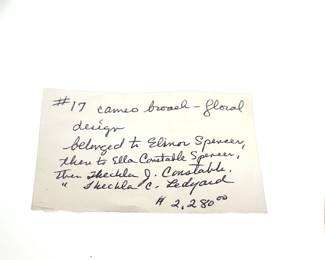 #17 cameo broach - floral
design
belonged to Elinor Spencer,
then to Ella Constable Spencer,
then Theckla J. Constable.
" Theckla C. Ledyard
# 2,280⁰⁰